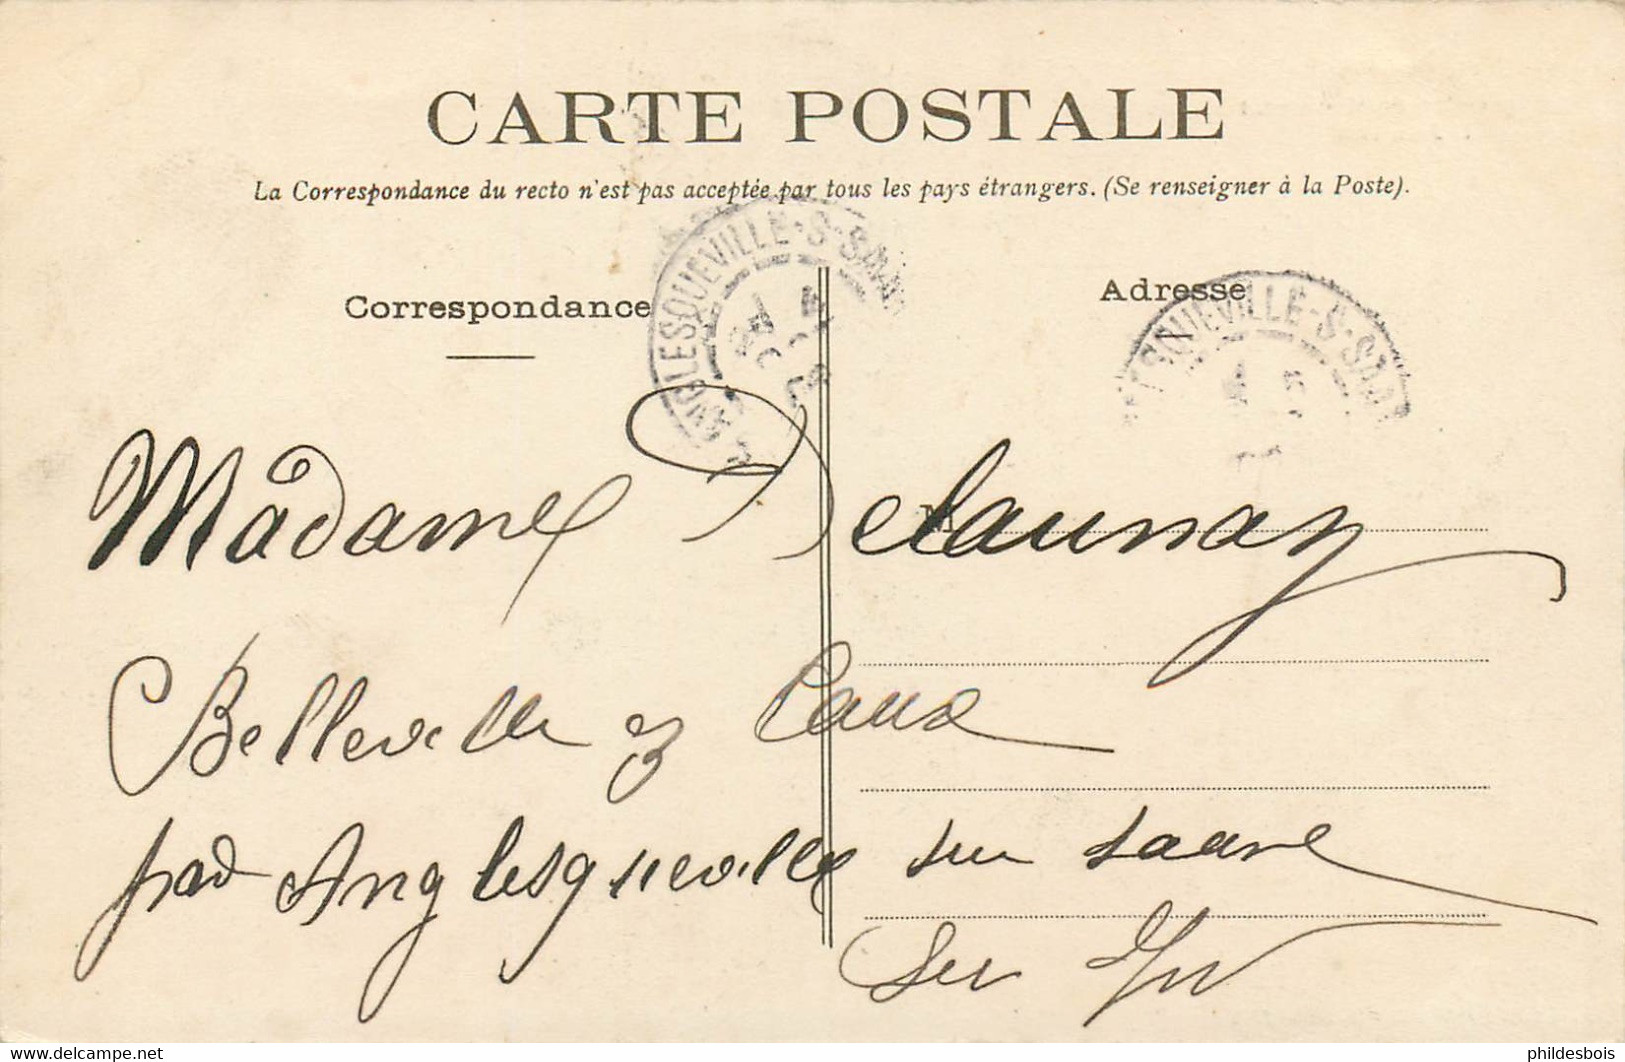 CARTE POSTALE
La Correspondance du recto n'est pas acceptée par tous les pays étrangers. (Se renseigner à la Poste).
Correspondance
Adresse
ANGLESQUEVILLE-S-SAANE
ESQUEVILLE-S-SAA
M
Madame Delaunay
Belleville en Caux
par Anglesqueville sur Saane
Sei Inf
phildesbois